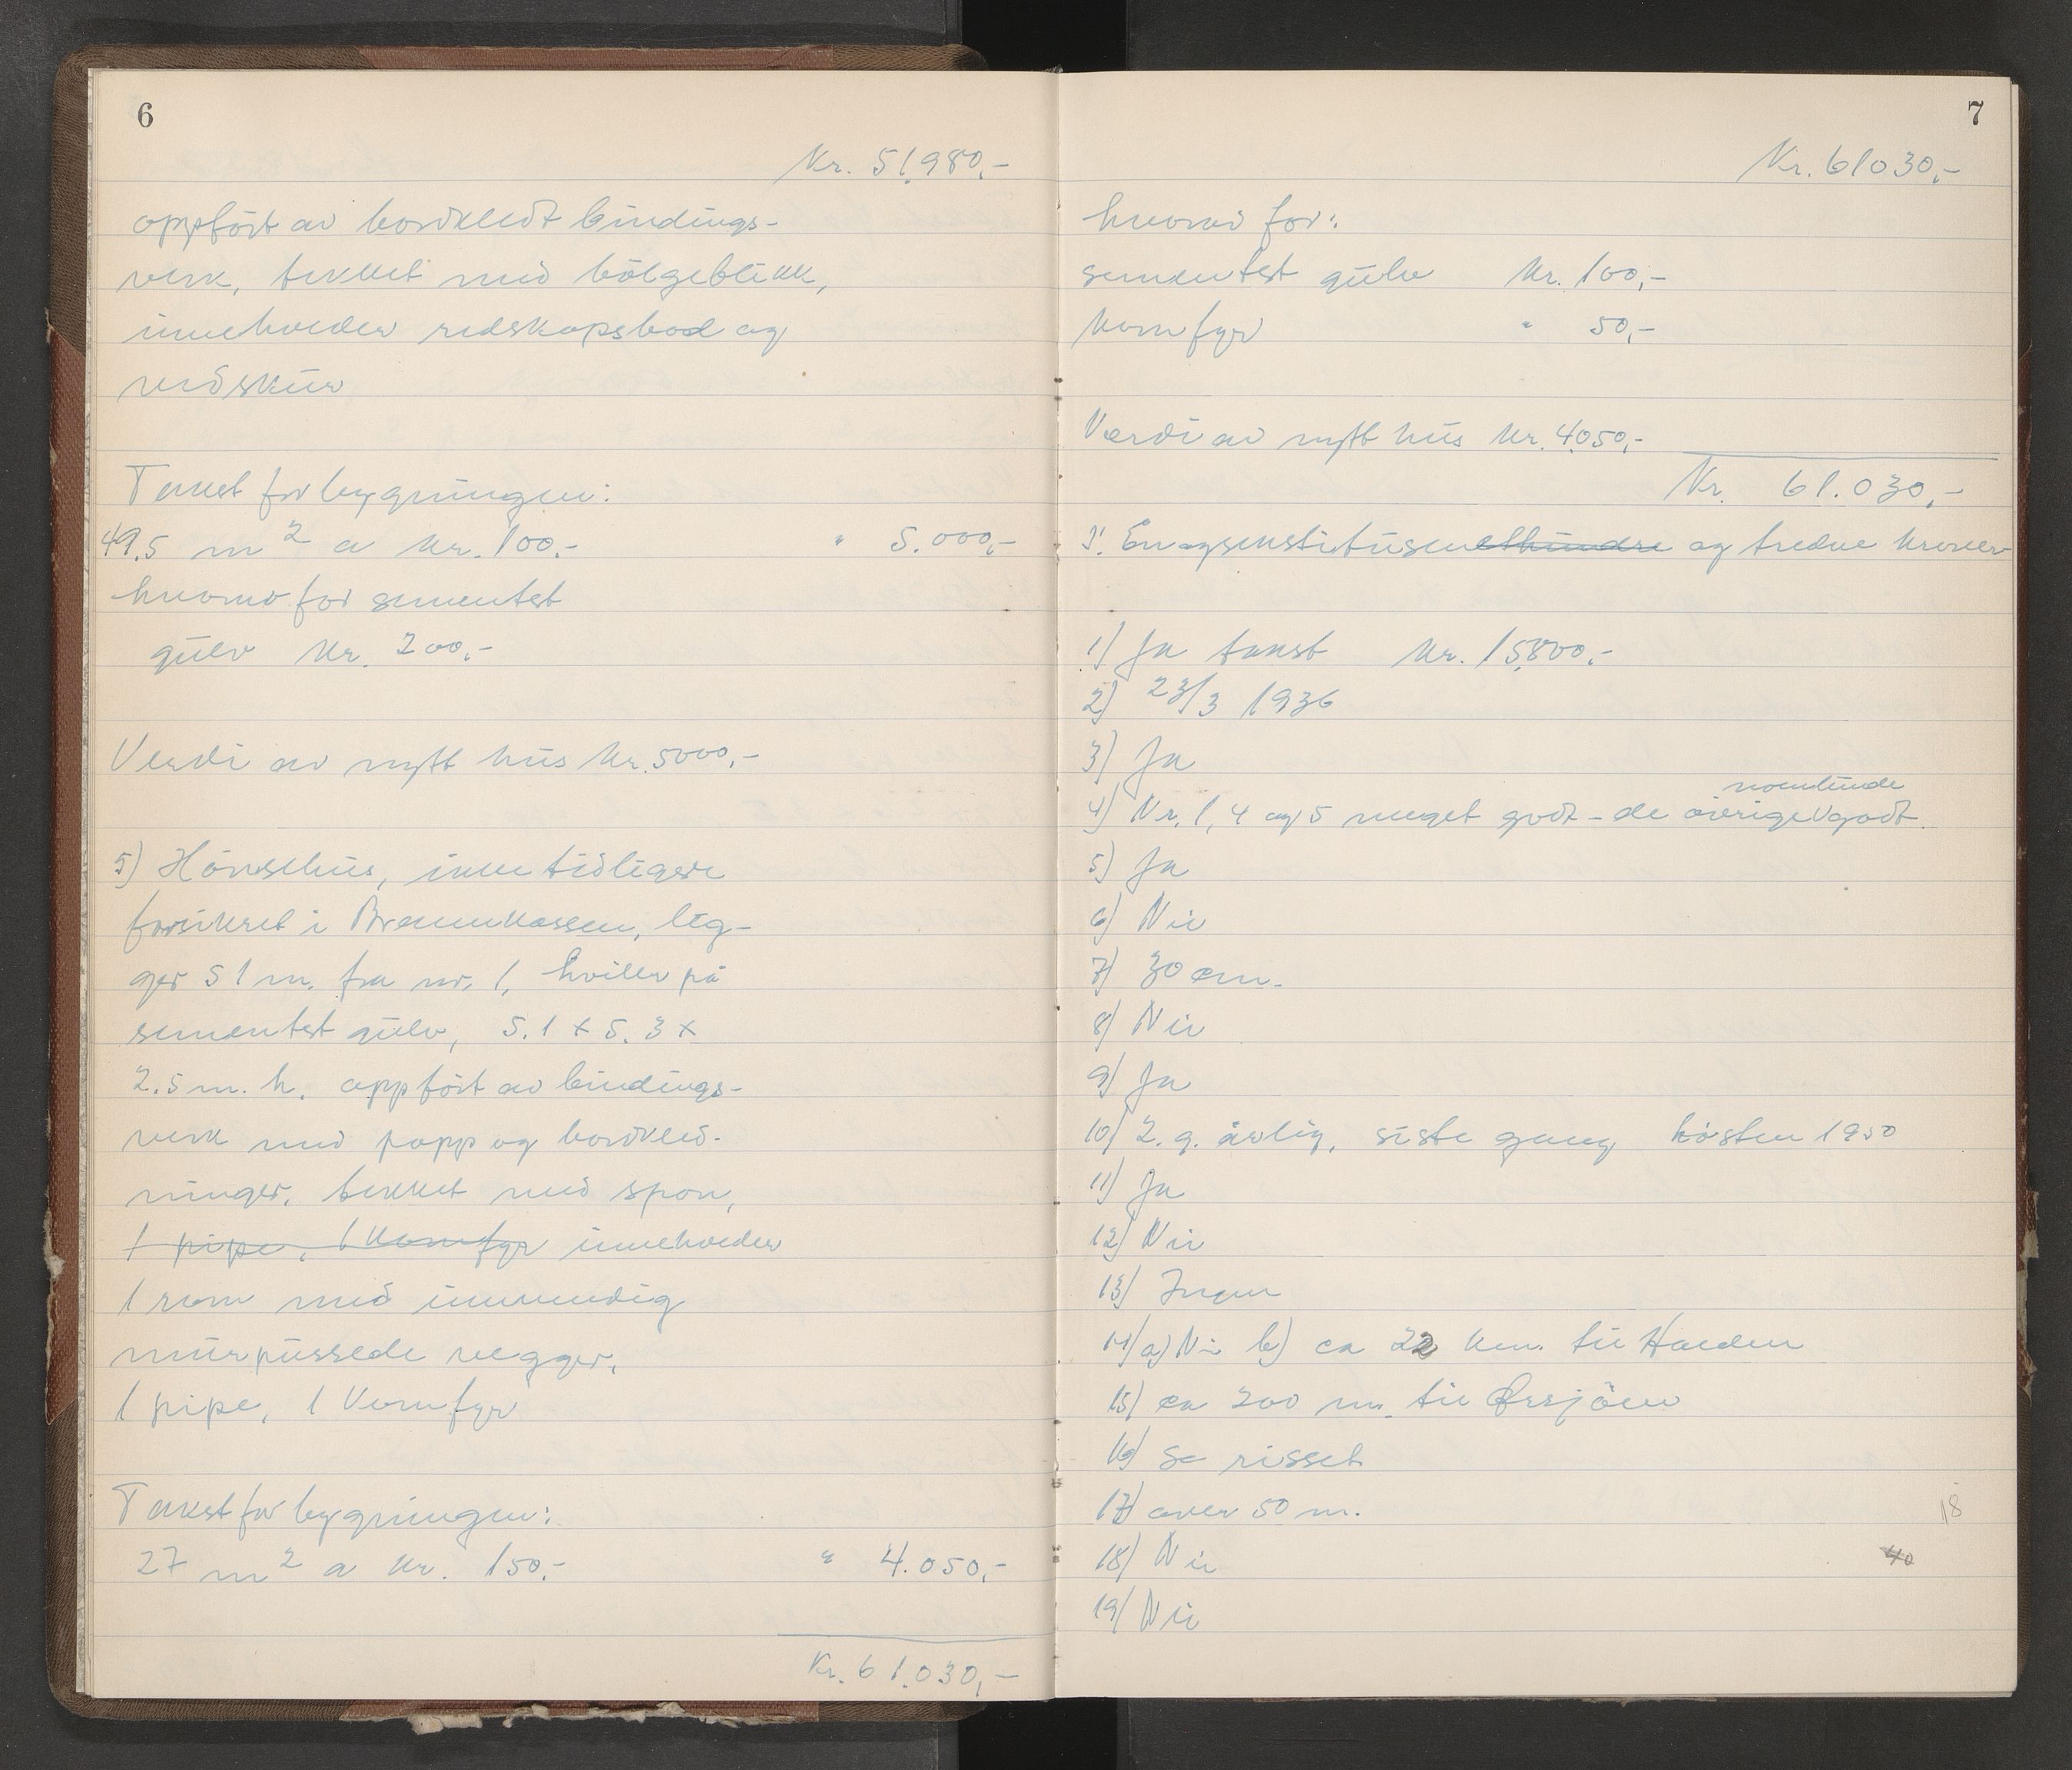 6
Kr. 51.980,-
oppfört av bordkledt bindings-
verk, tekket med bölgeblikk,
inneholder redskapsbod og
vedskur
Takst for bygningen:
49.5 m² a kr. 100.- " 5.000,-
hvorav for sementert
gulv kr. 200,-
Verdi av nytt hus kr. 5000,-
5) Hönsehus, ikke tidligere
forsikret i Brannkassen, lig-
ger 51 m. fra nr. 1, hviler på
sementert gulv, 5.1 x 5.3 x
2.5 m. h. oppfört av bindings-
verk med papp og bordkled-
ninger, tekket med spon,
1 pipe, 1 komfyr inneholder
1 rom med innvendig
murpussede vegger,
1 pipe, 1 komfyr
Takst for bygningen:
27 m² a kr. 150,- " 4.050,-
Kr. 61.030,-
7
Kr. 61030,-
hvorav for:
sementert gulv kr. 100,-
komfyr " 50,-
Verdi av nytt hus kr. 4.050,-
Kr. 61.030,-
Enogsekstitusen etthundre og tredve kroner
1) Ja takst kr. 15.800,-
2) 23/3 1936
3) Ja
noenlunde
4) Nr. 1, 4 og 5 meget godt - de övrige godt.
5) Ja
6) Nei
7) 30 cm.
8) Nei
9) Ja
10) 2. g. årlig, siste gang hösten 1950
11) Ja
12) Nei
13) Ingen
14) a) Nei b) ca 22 km. til Halden
15) ca 200 m. til Örsjöen
16) Se risset
17) over 50 m.
18
18) Nei
40
19) Nei